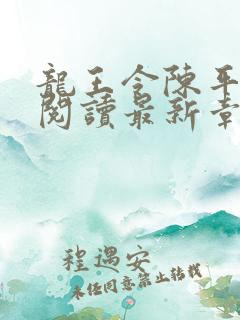 龍王令陳平
閱讀最新章
程遇安
未经同意禁止转载